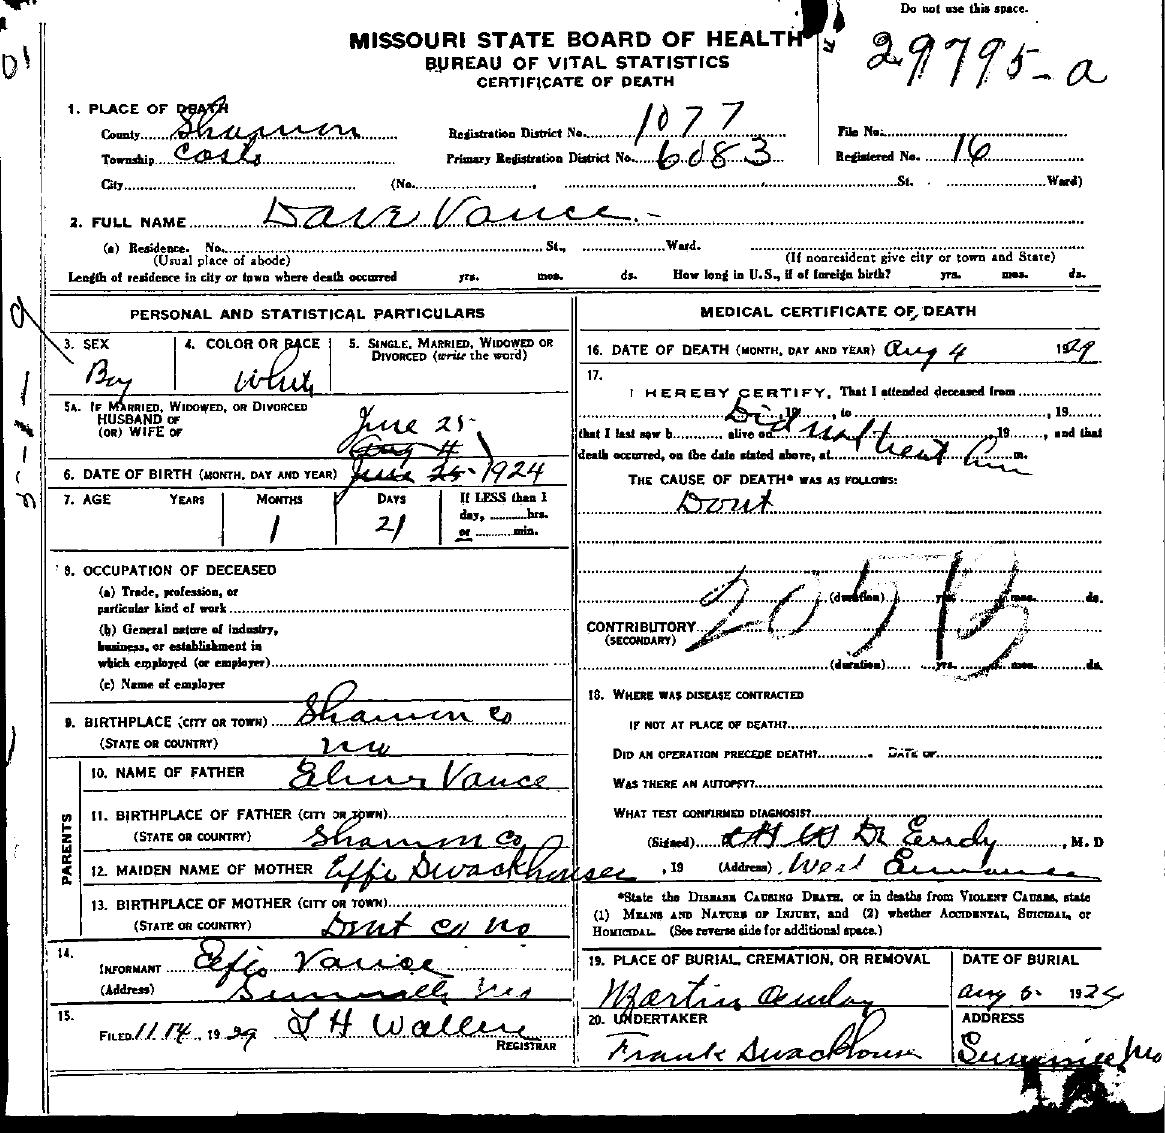 Do not use this space.
MISSOURI STATE BOARD OF HEALTH
BUREAU OF VITAL STATISTICS
CERTIFICATE OF DEATH
29795-a
1. PLACE OF DEATH
County Shannon Registration District No. 1077 File No.
Township Primary Registration District No. 6083 Registered No. 16
City (No. , St. Ward)
2. FULL NAME Dave Vance
(a) Residence. No. St., Ward.
(Usual place of abode) (If nonresident give city or town and State)
Length of residence in city or town where death occurred yrs. mos. ds. How long in U.S., if of foreign birth? yrs. mos. ds.
PERSONAL AND STATISTICAL PARTICULARS
3. SEX 4. COLOR OR RACE 5. SINGLE, MARRIED, WIDOWED OR
DIVORCED (write the word)
Boy White
5A. IF MARRIED, WIDOWED, OR DIVORCED
HUSBAND OF
(OR) WIFE OF
June 25
6. DATE OF BIRTH (MONTH, DAY AND YEAR) June 25 1924
7. AGE YEARS MONTHS DAYS If LESS than 1
day, hrs.
or min.
1 21
8. OCCUPATION OF DECEASED
(a) Trade, profession, or
particular kind of work
(b) General nature of industry,
business, or establishment in
which employed (or employer)
(c) Name of employer
9. BIRTHPLACE (CITY OR TOWN) Shannon Co
(STATE OR COUNTRY) Mo
PARENTS
10. NAME OF FATHER Elmer Vance
11. BIRTHPLACE OF FATHER (CITY OR TOWN)
(STATE OR COUNTRY) Shannon Co
12. MAIDEN NAME OF MOTHER Effie Swackhouser
13. BIRTHPLACE OF MOTHER (CITY OR TOWN)
(STATE OR COUNTRY) Dent Co Mo
14.
INFORMANT Effie Vance
(Address) Mo
15.
FILED 11.14, 1929 L H Waller
REGISTRAR
MEDICAL CERTIFICATE OF DEATH
16. DATE OF DEATH (MONTH, DAY AND YEAR) Aug 4 1929
17.
I HEREBY CERTIFY, That I attended deceased from
, 19 , to , 19
that I last saw h alive on 19 , and that
death occurred, on the date stated above, at m.
Did not treat
THE CAUSE OF DEATH* WAS AS FOLLOWS:
Dont
205 B
(duration) yrs. mos. ds.
CONTRIBUTORY
(SECONDARY)
(duration) yrs. mos. ds.
18. WHERE WAS DISEASE CONTRACTED
IF NOT AT PLACE OF DEATH?
DID AN OPERATION PRECEDE DEATH? DATE OF
WAS THERE AN AUTOPSY?
WHAT TEST CONFIRMED DIAGNOSIS?
(Signed) Dr Eudy, M. D
, 19 (Address) West Eminence
*State the DISEASE CAUSING DEATH, or in deaths from VIOLENT CAUSES, state
(1) MEANS AND NATURE OF INJURY, and (2) whether ACCIDENTAL, SUICIDAL, or
HOMICIDAL. (See reverse side for additional space.)
19. PLACE OF BURIAL, CREMATION, OR REMOVAL DATE OF BURIAL
Martin Aug 5 1924
20. UNDERTAKER ADDRESS
Frank Swackhouser Mo